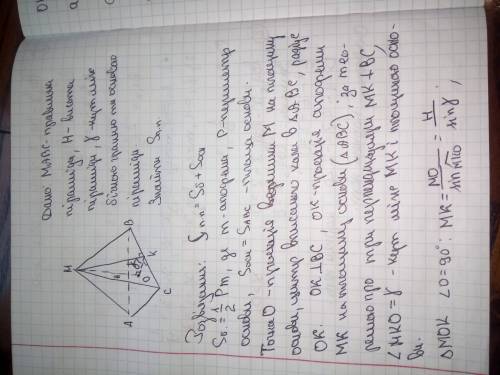 Дано МАВС-правильна
піраміда, Н-висота
піраміди, γ-кут між
бічною гранню та основою
піраміди
Знайти Sп.п
M
A
B
C
O
K
Розв'язання: Sп.п = Sб + Sосн
Sб = 1/2 Pm, де m-апофема, P-периметр
основи, Sосн = SABC - площа основи.
Точка О - проекція вершини М на площину
основи, центр вписаного кола в ΔАВС, радіус
ОК OK⊥BC, ОК-проекція апофеми
МК на площину основи (ΔАВС), за тео-
ремою про три перпендикуляри MK⊥BC,
∠MKO=γ - кут між МК і площиною осно-
ви.
ΔMOK ∠O=90°: MK = MO/sin MKO = H/sin γ ;